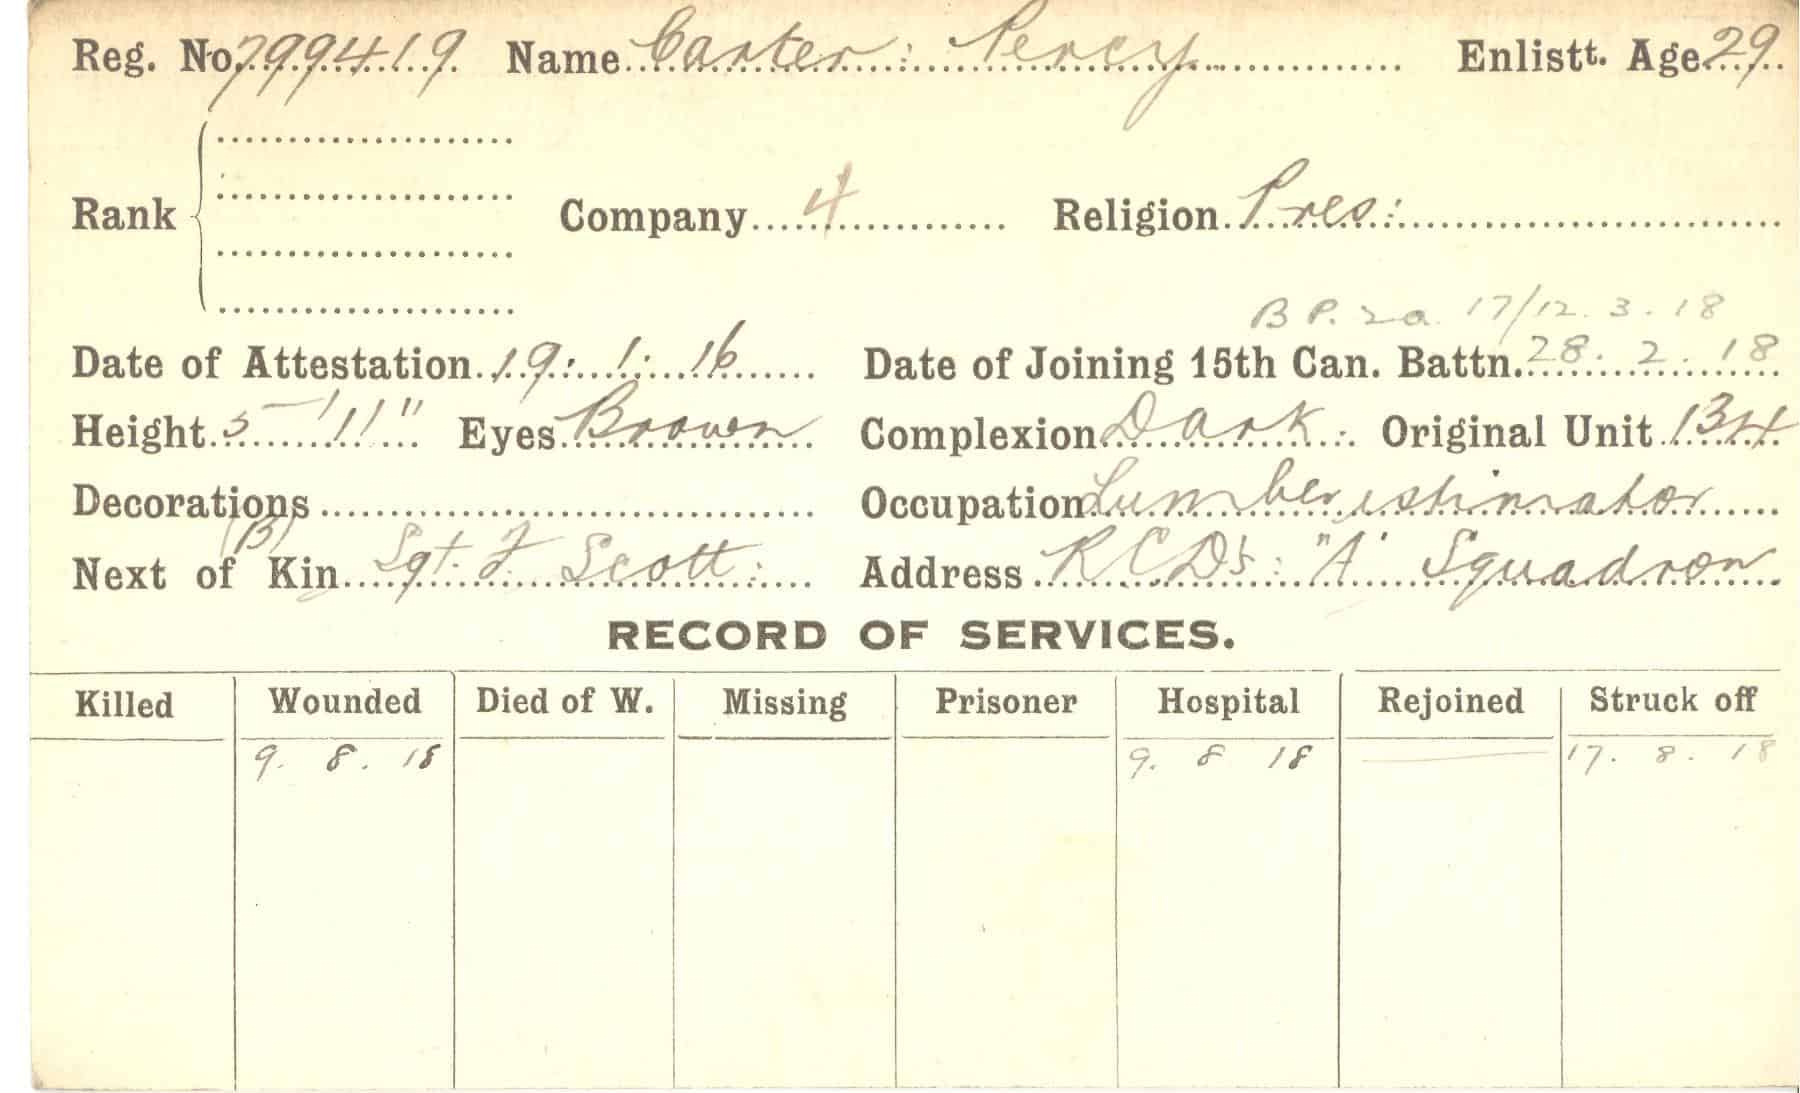 Reg. No. 799419 Name Carter : Percy Enlistt. Age 29
Rank Company 4 Religion Pres:
B P. 2a. 17/12. 3. 18
Date of Attestation 19 : 1 : 16 Date of Joining 15th Can. Battn. 28. 2. 18
Height 5' 11" Eyes Brown Complexion Dark : Original Unit 134
Decorations Occupation Lumber estimator
(B)
Next of Kin Sgt. F. Scott : Address R C D's : "A" Squadron
RECORD OF SERVICES.
Killed Wounded Died of W. Missing Prisoner Hospital Rejoined Struck off
9. 8. 18 9. 8 18 17. 8. 18